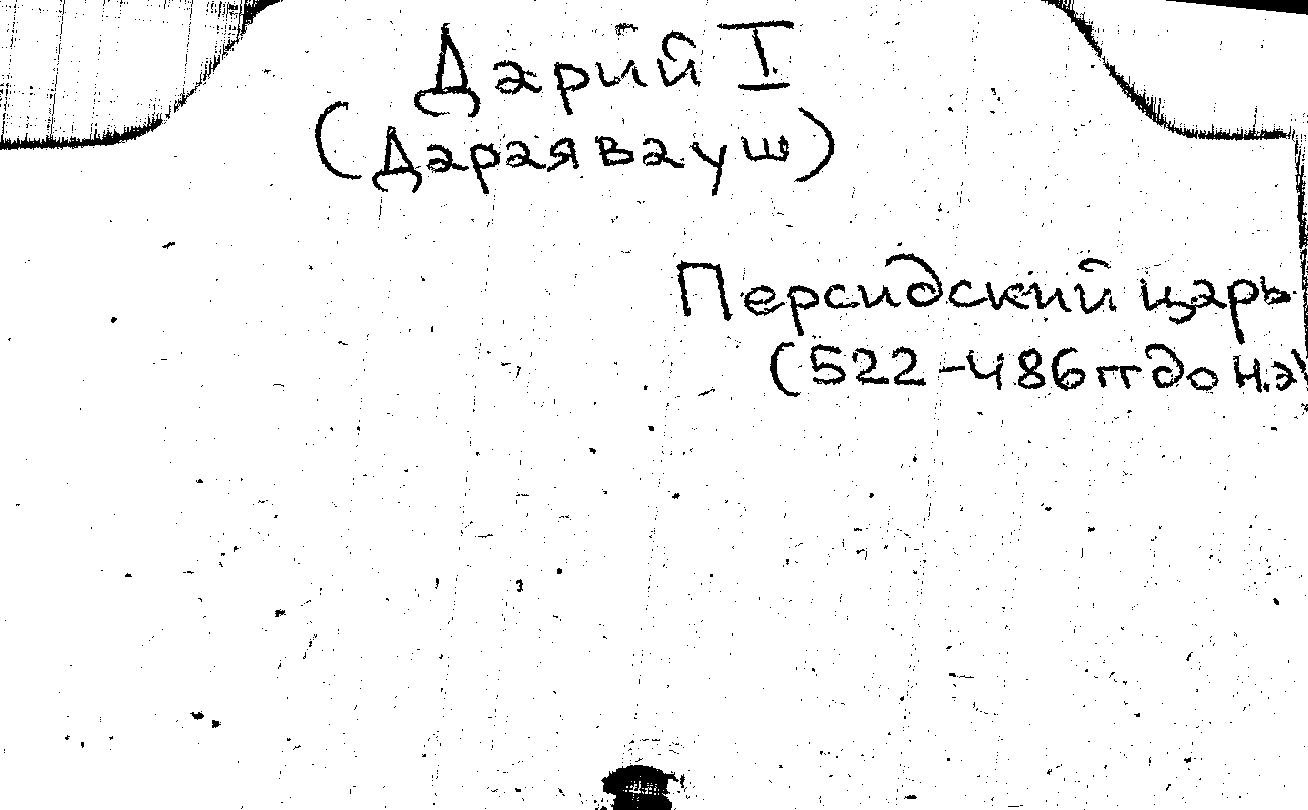 Дарий I
(Дараявауш)
Персидский царь
(522-486 гг до н.э)